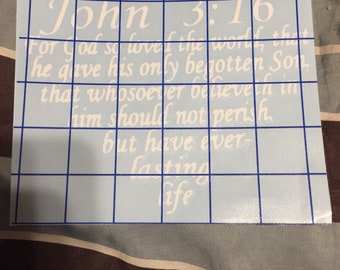 John 3:16
For God so loved the world, that
he gave his only begotten Son,
that whosoever believeth in
him should not perish,
but have ever-
lasting
life